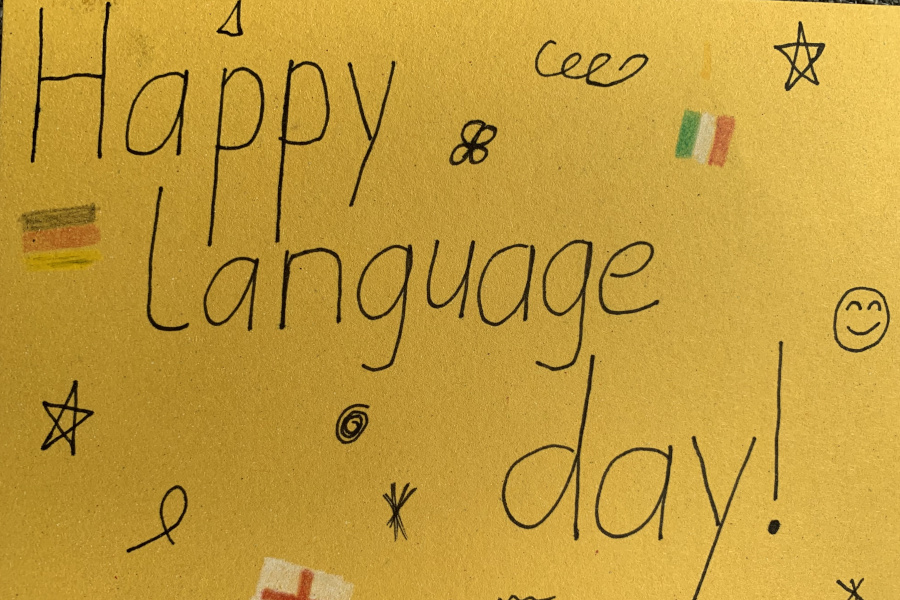 Happy
Language
day!